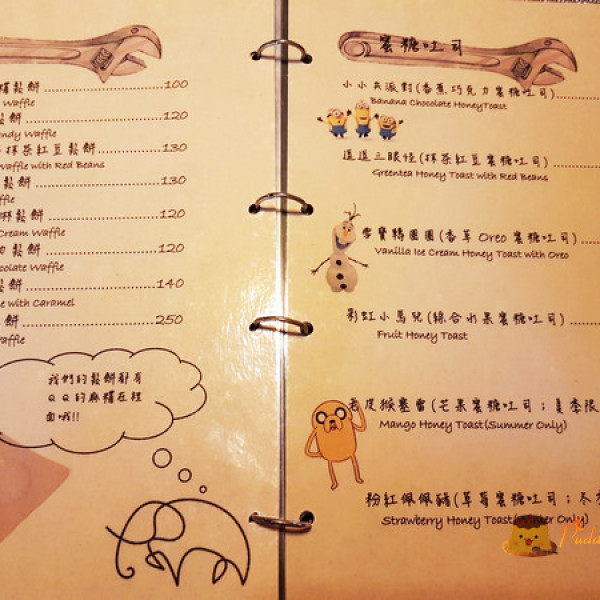 鬆餅 100
Waffle
鬆餅 120
ndy Waffle
抹茶紅豆鬆餅 130
Waffle with Red Beans
鬆餅 130
ffle
淋鬆餅 120
Cream Waffle
力鬆餅 120
colate Waffle
鬆餅 140
le with Caramel
餅 250
affle
我們的鬆餅都有
QQ的麻糬在裡
面哦!!
蜜糖吐司
小小兵派對(香蕉巧克力蜜糖吐司)
Banana Chocolate HoneyToast
逗逗三眼怪(抹茶紅豆蜜糖吐司)
Greentea Honey Toast with Red Beans
雪寶轉圈圈(香草Oreo蜜糖吐司)
Vanilla Ice Cream Honey Toast with Oreo
彩虹小馬兒(綜合水果蜜糖吐司)
Fruit Honey Toast
老皮猴塞雷(芒果蜜糖吐司;夏季限
Mango Honey Toast(Summer Only)
粉紅佩佩豬(草莓蜜糖吐司;冬季
Strawberry Honey Toast(Winter Only)
Pudd